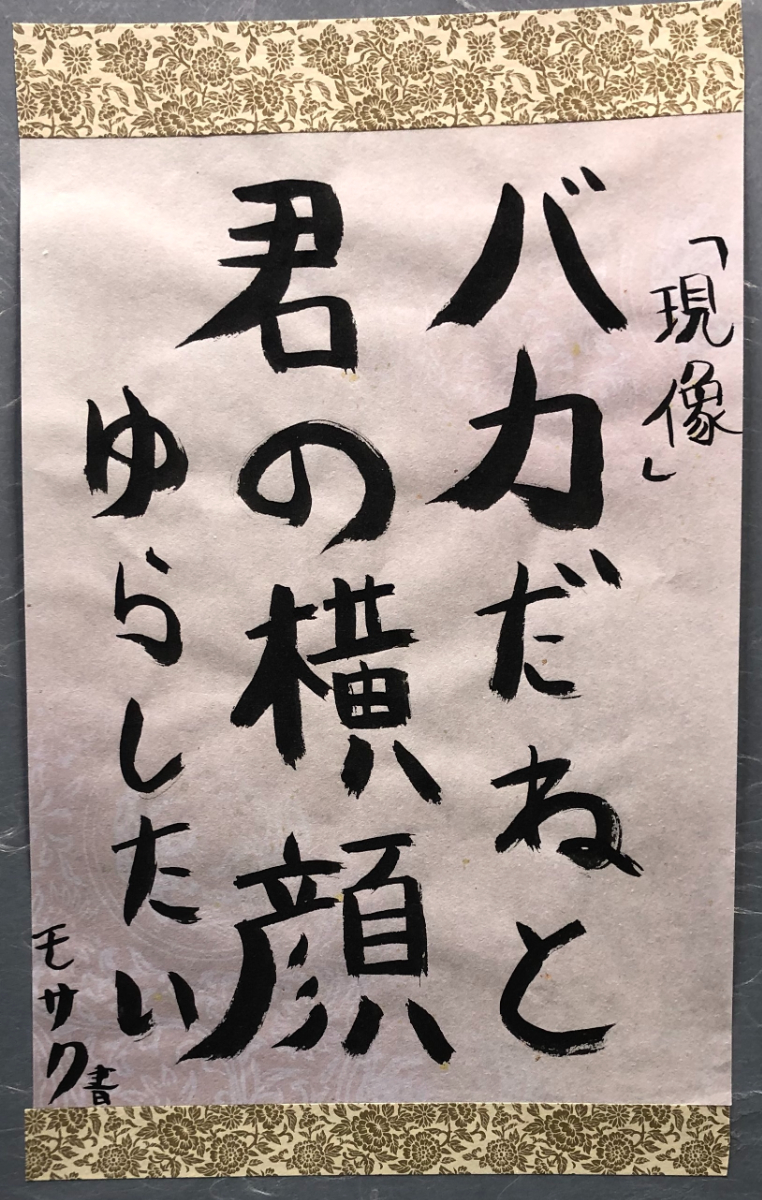 「現像」
バカだねと
君の横顔
ゆらしたい
モサク書